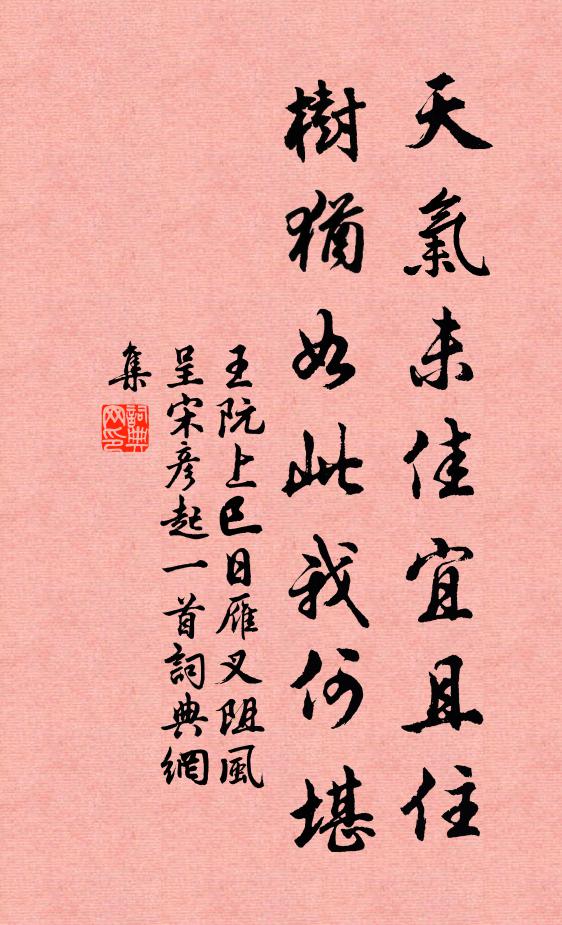 天氣未佳宜且住
樹猶如此我何堪
王阮上巳日雁叉阻風
呈宋彥起一首詞典網
集
詞典
网印